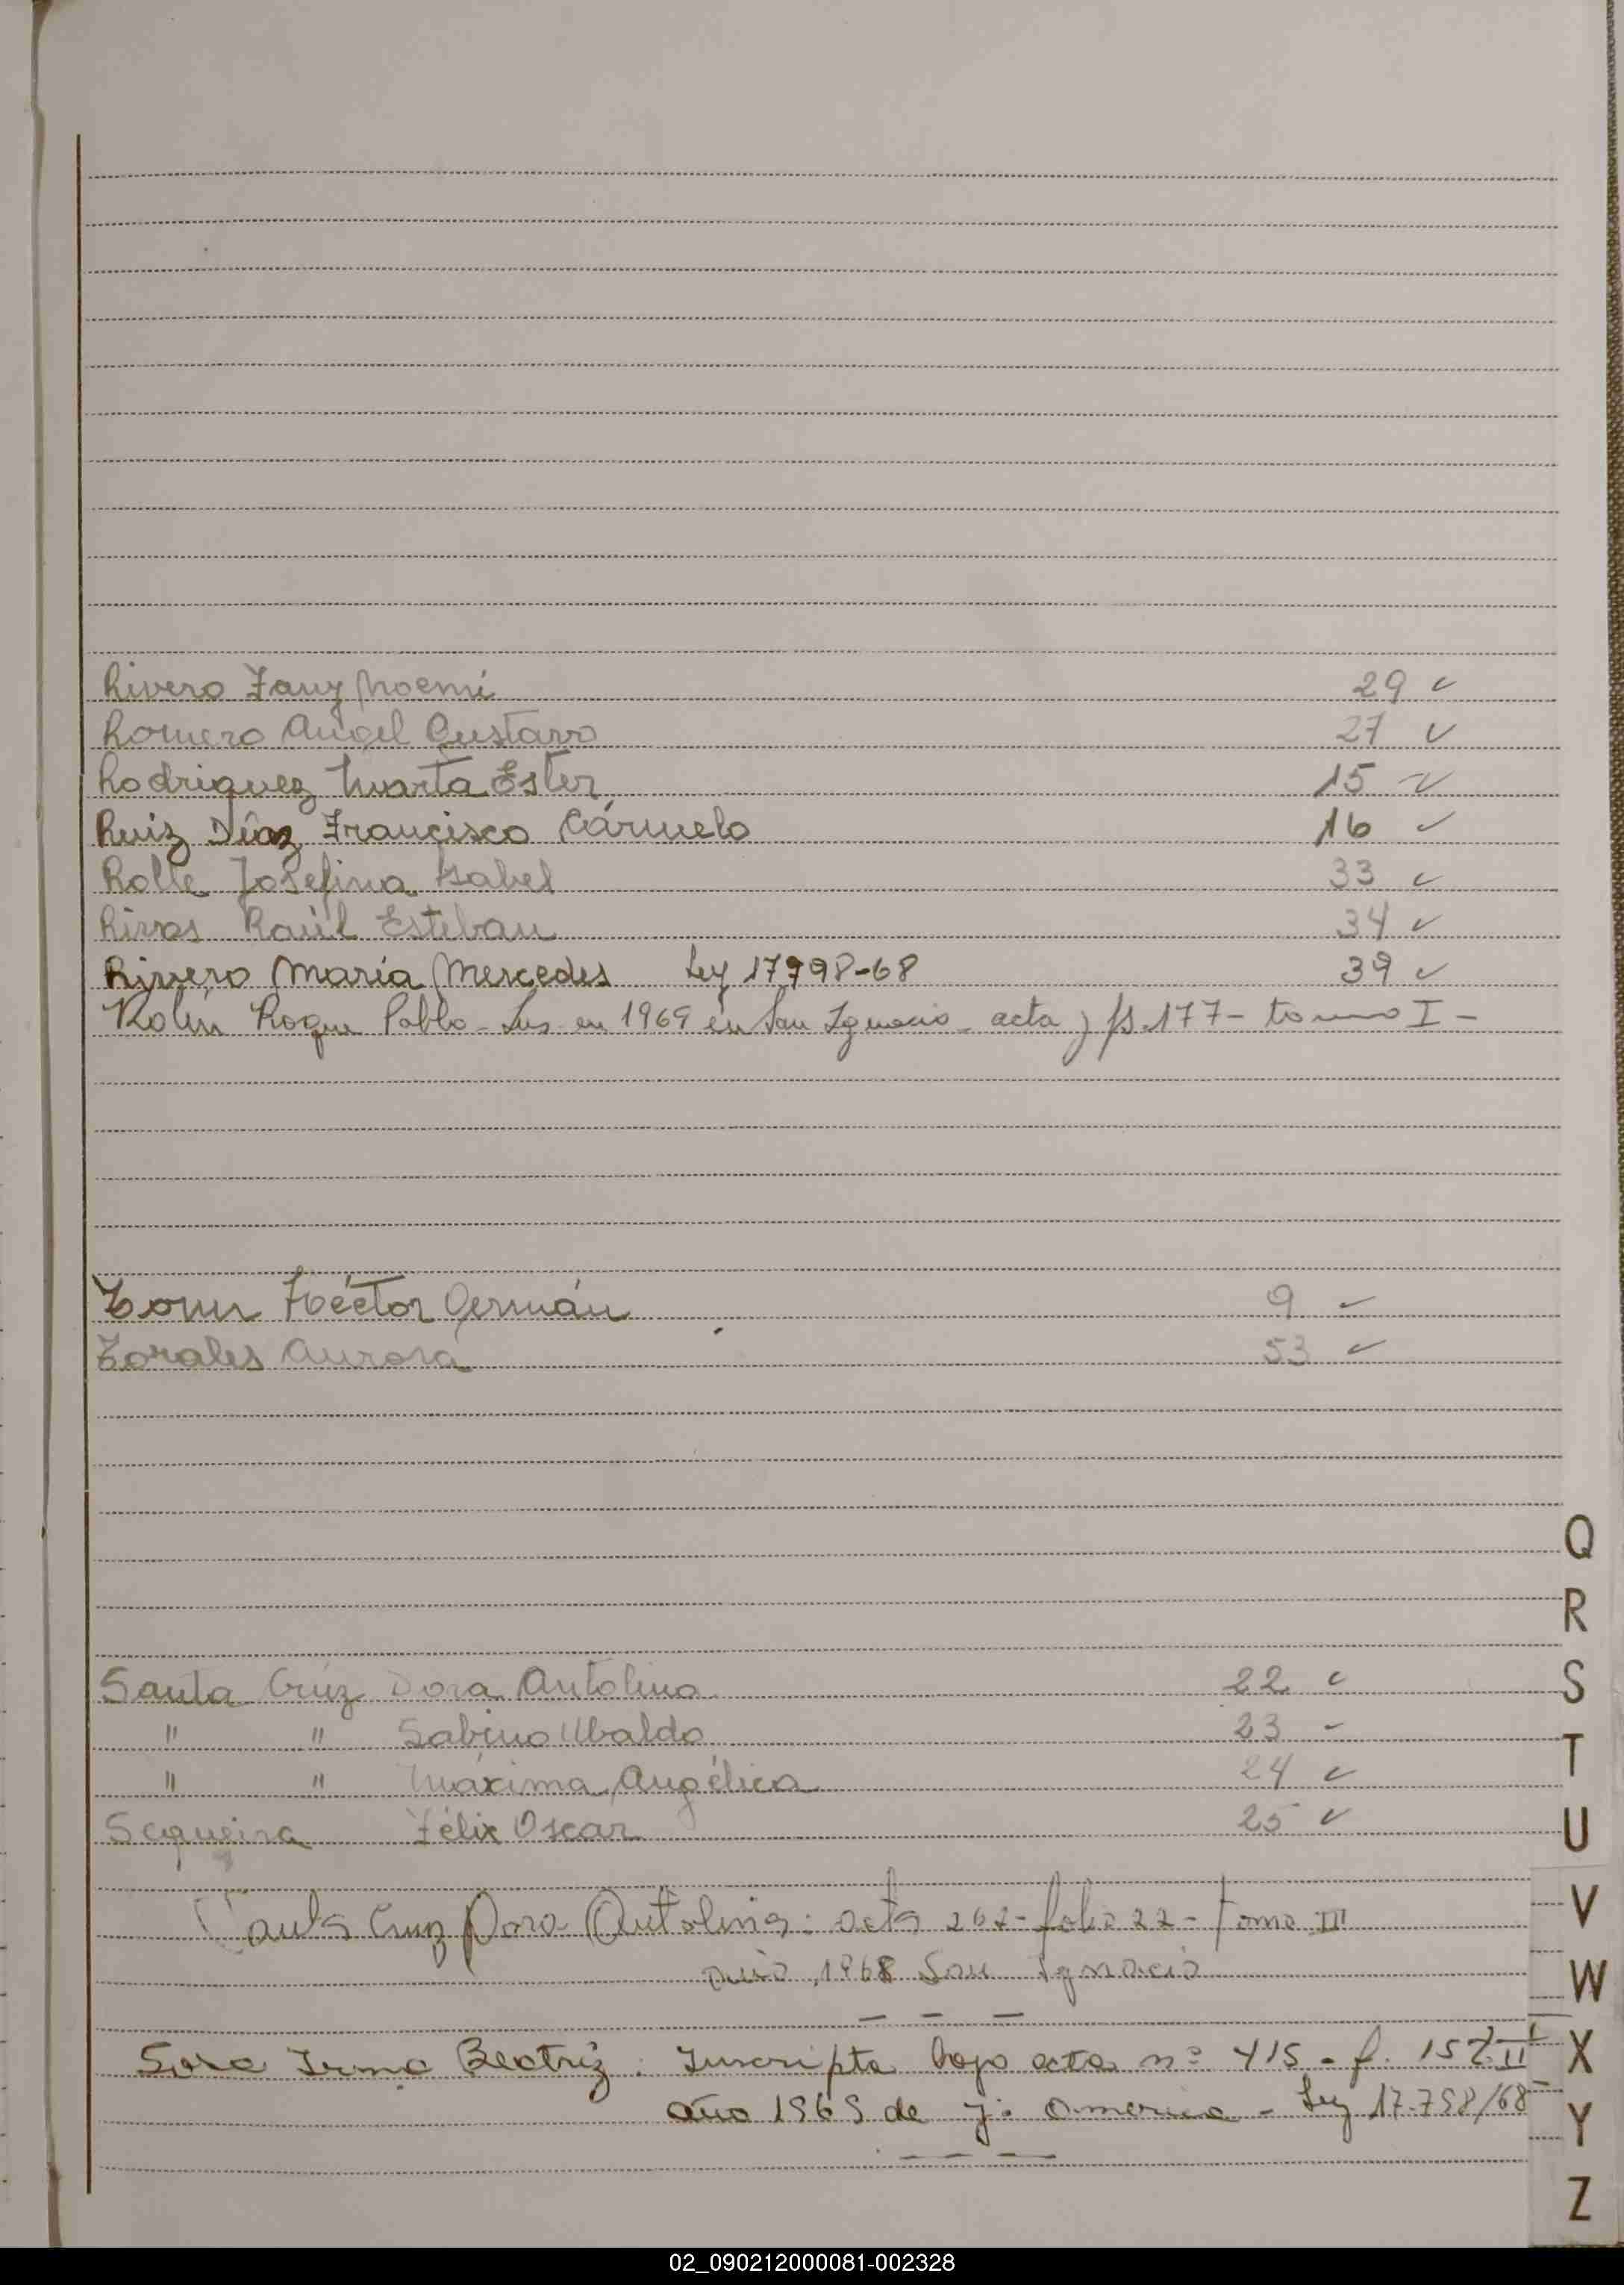 Rivero Fany Noemi 29 ✓
Romero Angel Gustavo 27 ✓
Rodriguez Marta Ester 15 ✓
Ruiz Díaz Francisco Cármelo 16 ✓
Rolle Josefina Isabel 33 ✓
Rivas Raúl Esteban 34 ✓
Rivero María Mercedes Ley 17798-68 39 ✓
Rolin Roque Pablo - Ins. en 1969 en San Ignacio - acta y fs. 177 - tomo I -
Héctor Germán 9 ✓
Torales Aurora 53 ✓
Q
R
Santa Crúz Dora Antolina 22 ✓
S
" " Sabino Ubaldo 23 -
T
" " Máxima Angélica 24 ✓
Sequeira Félix Oscar 25 ✓
U
Santa Cruz Dora Antolina: acta 262 - folio 22 - tomo III
V
1968 San Ignacio
W
Sosa Irma Beatriz. Inscripta bajo acta nº 415 - f. 15
X
año 1969 de J. America - Ley 17.798/68
Y
Z
02_090212000081-002328